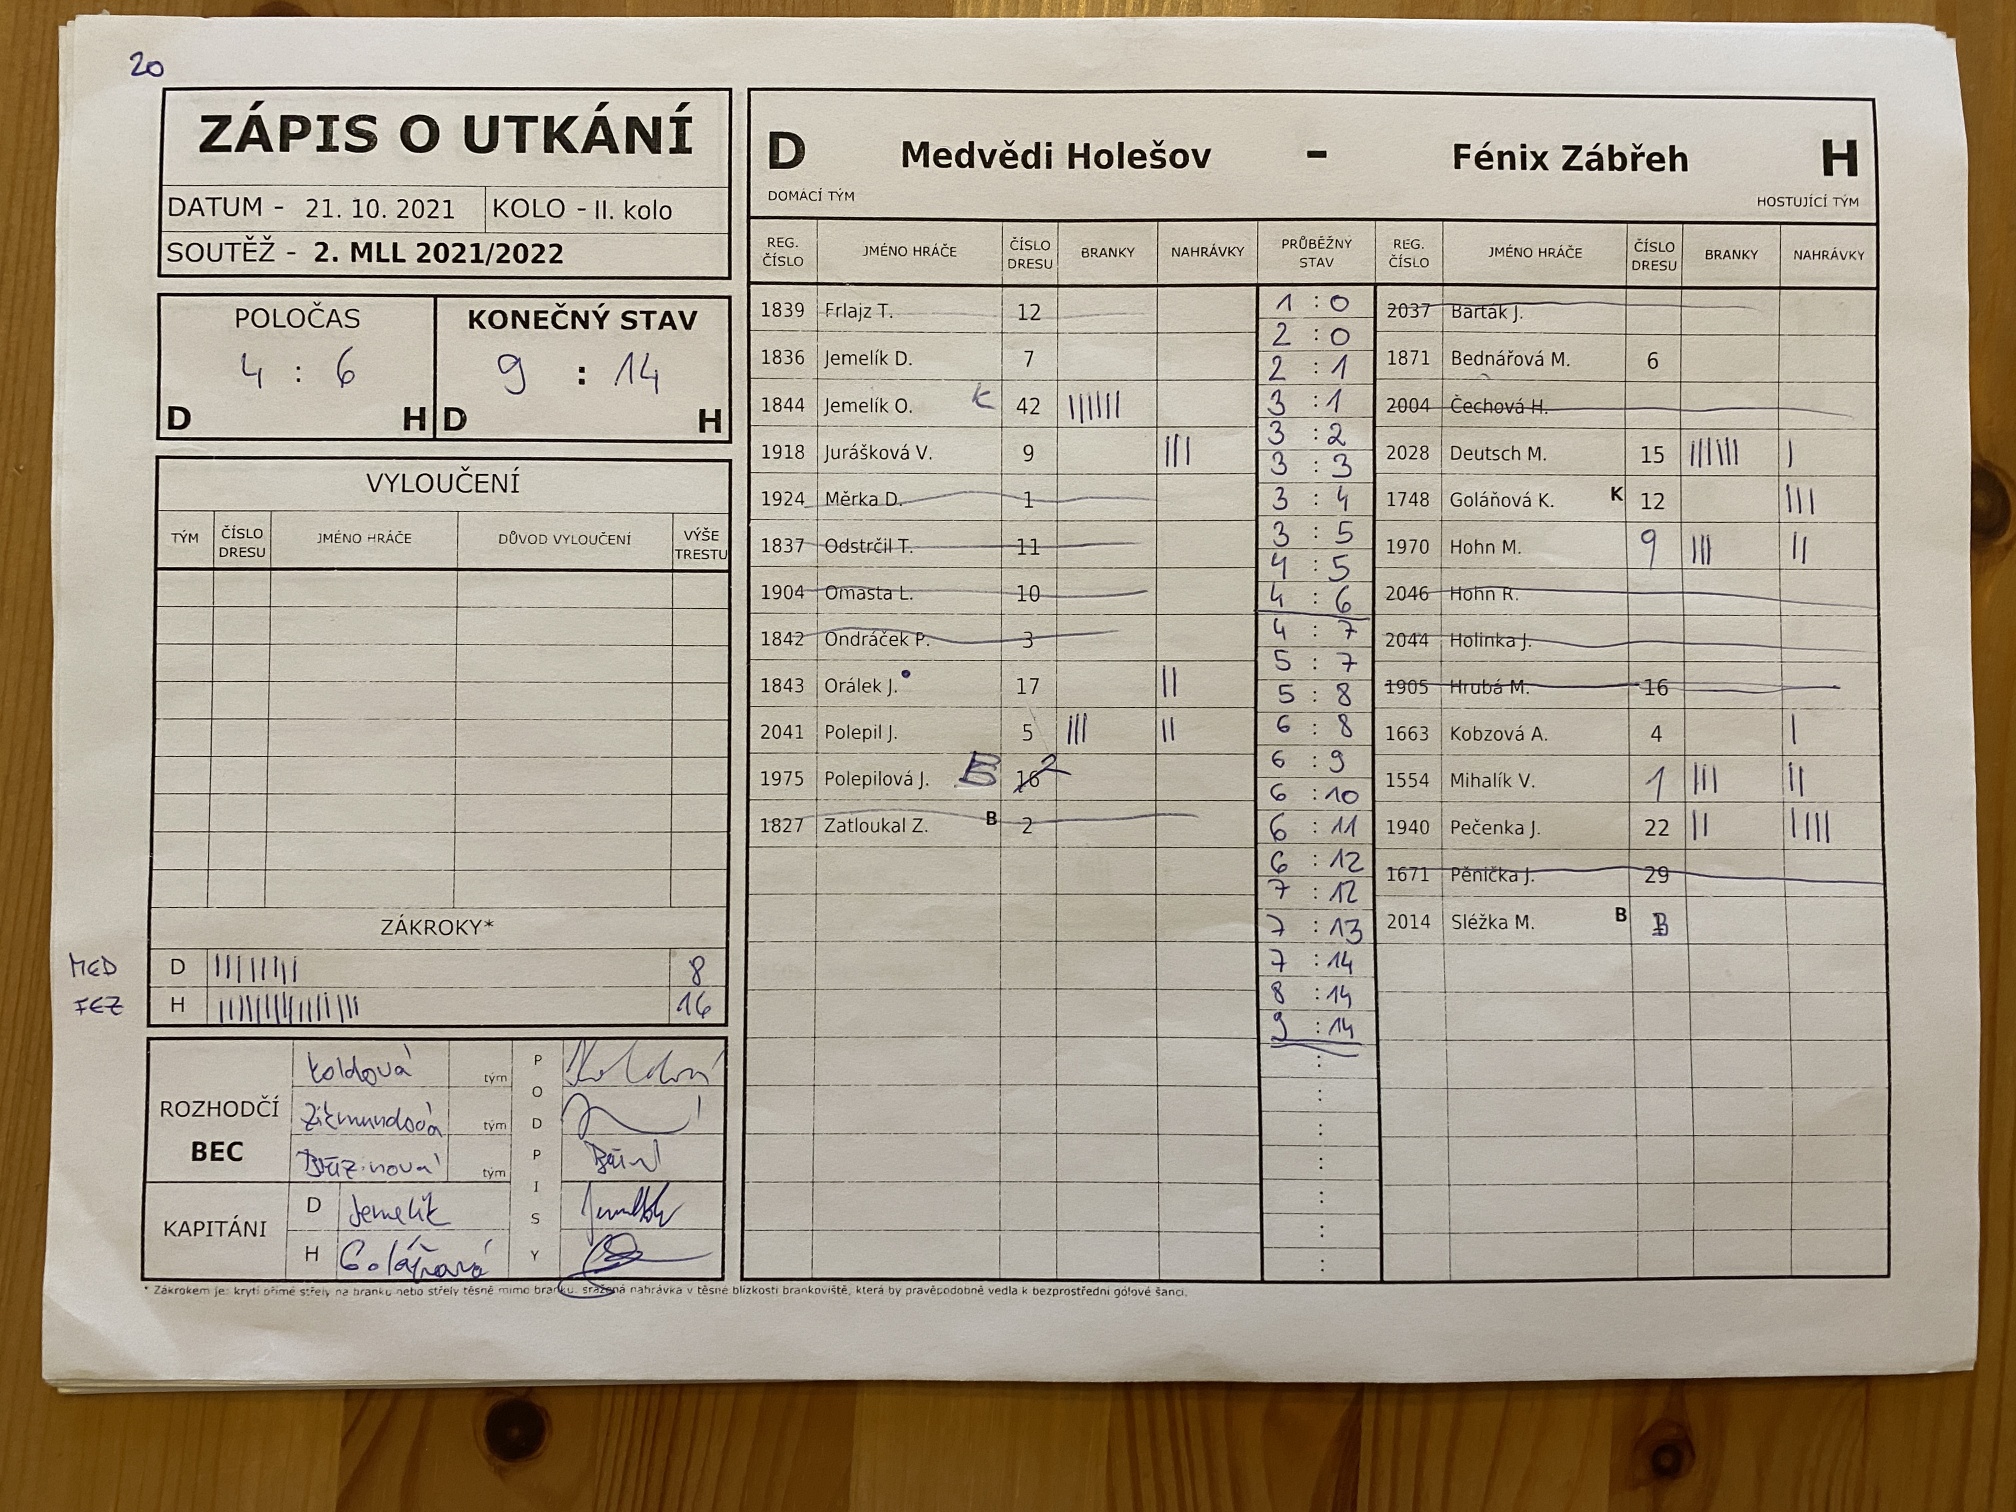 20
ZÁPIS O UTKÁNÍ
DATUM - 21. 10. 2021 KOLO - II. kolo
SOUTĚŽ - 2. MLL 2021/2022
POLOČAS KONEČNÝ STAV
4 : 6 9 : 14
D H D H
VYLOUČENÍ
TÝM ČÍSLO DRESU JMÉNO HRÁČE DŮVOD VYLOUČENÍ VÝŠE TRESTU
ZÁKROKY*
MED D |||||||| 8
FEZ H |||||||||||||||| 16
ROZHODČÍ
BEC
Koldová tým
Zikmundová tým
Březinová tým
PODPISY
KAPITÁNI
D Jemelík
H Goláňová
D Medvědi Holešov - Fénix Zábřeh H
DOMÁCÍ TÝM HOSTUJÍCÍ TÝM
REG. ČÍSLO JMÉNO HRÁČE ČÍSLO DRESU BRANKY NAHRÁVKY PRŮBĚŽNÝ STAV REG. ČÍSLO JMÉNO HRÁČE ČÍSLO DRESU BRANKY NAHRÁVKY
1839 Frlajz T. 12
1836 Jemelík D. 7
1844 Jemelík O. K 42 ||||||
1918 Jurášková V. 9 |||
1924 Měrka D. 1
1837 Odstrčil T. 11
1904 Omasta L. 10
1842 Ondráček P. 3
1843 Orálek J. 17 ||
2041 Polepil J. 5 ||| ||
1975 Polepilová J. B 16 2
1827 Zatloukal Z. B 2
1 : 0
2 : 0
2 : 1
3 : 1
3 : 2
3 : 3
3 : 4
3 : 5
4 : 5
4 : 6
4 : 7
5 : 7
5 : 8
6 : 8
6 : 9
6 : 10
6 : 11
6 : 12
7 : 12
7 : 13
7 : 14
8 : 14
9 : 14
:
:
:
:
:
:
:
2037 Barták J.
1871 Bednářová M. 6
2004 Čechová H.
2028 Deutsch M. 15 |||||| |
1748 Goláňová K. K 12 |||
1970 Hohn M. 9 ||| ||
2046 Hohn R.
2044 Holinka J.
1905 Hrubá M. 16
1663 Kobzová A. 4 |
1554 Mihalík V. 1 ||| ||
1940 Pečenka J. 22 || ||||
1671 Pěnička J. 29
2014 Sléžka M. B
* Zákrokem je: krytí přímé střely na branku nebo střely těsně mimo branku, sražená nahrávka v těsné blízkosti brankoviště, která by pravěpodobně vedla k bezprostřední gólové šanci.